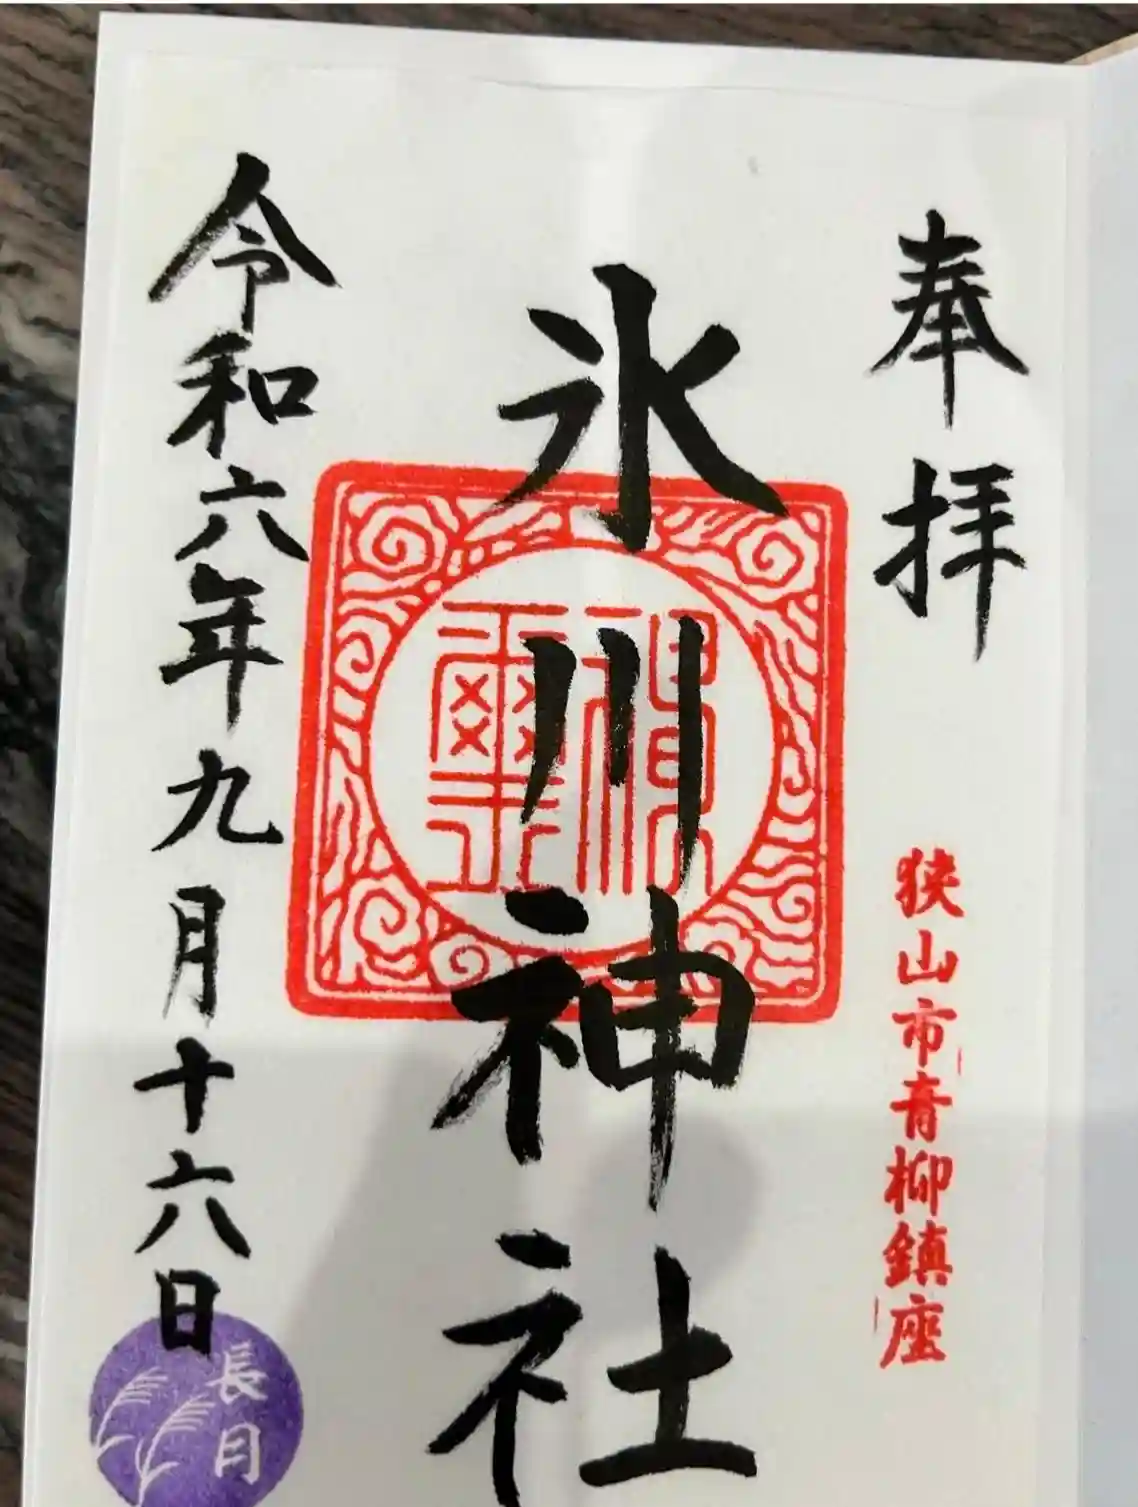 奉拝
狭山市青柳鎮座
氷川神社
神璽
令和六年九月十六日
長月